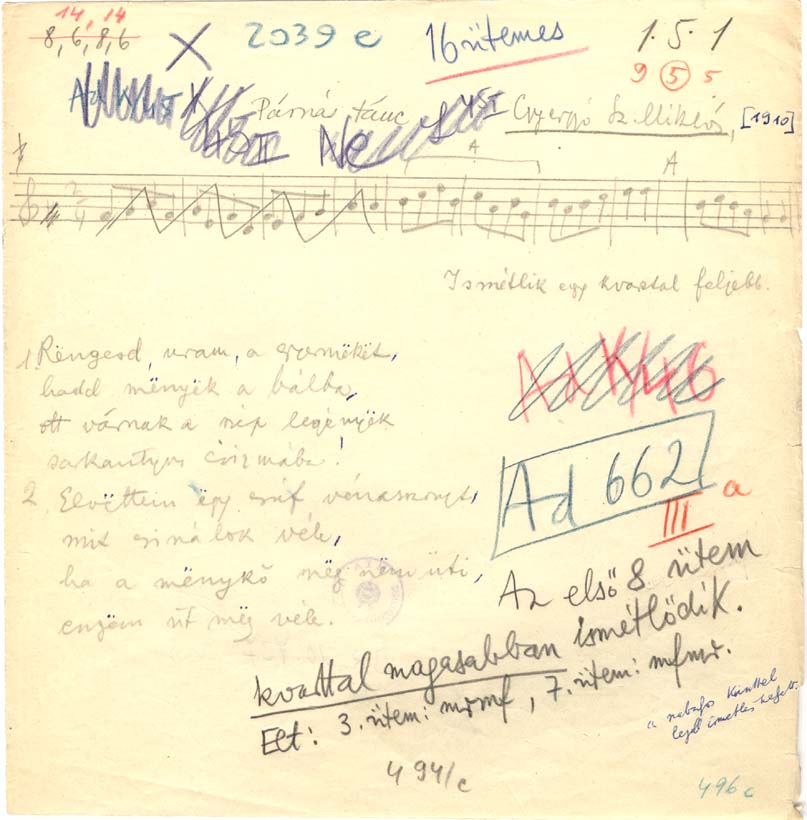 14, 14
8, 6, 8, 6
X
2039 e
16 ütemes
1. 5. 1
9 5 5
Párnás tánc
Gyergyó Sz. Miklós, [1910]
Ne
A
A
2/4
Ismétlik egy kvarttal feljebb.
1. Rëngesd, uram, a gyermëkët,
hadd mënyëk a bálba,
ott várnak a nip legényëk
sarkantyus csizmába!
2. Elvëttem ëgy csúf vénasszonyt,
mit csinálok véle,
ha a mënykő mëg nëm üti,
engëm üt mëg véle.
Ad K/46
Ad 662
III a
Az első 8 ütem
kvarttal magasabban ismétlődik.
Elt: 3. ütem: mrmf, 7. ütem: mfmr.
a
494/c
496 c